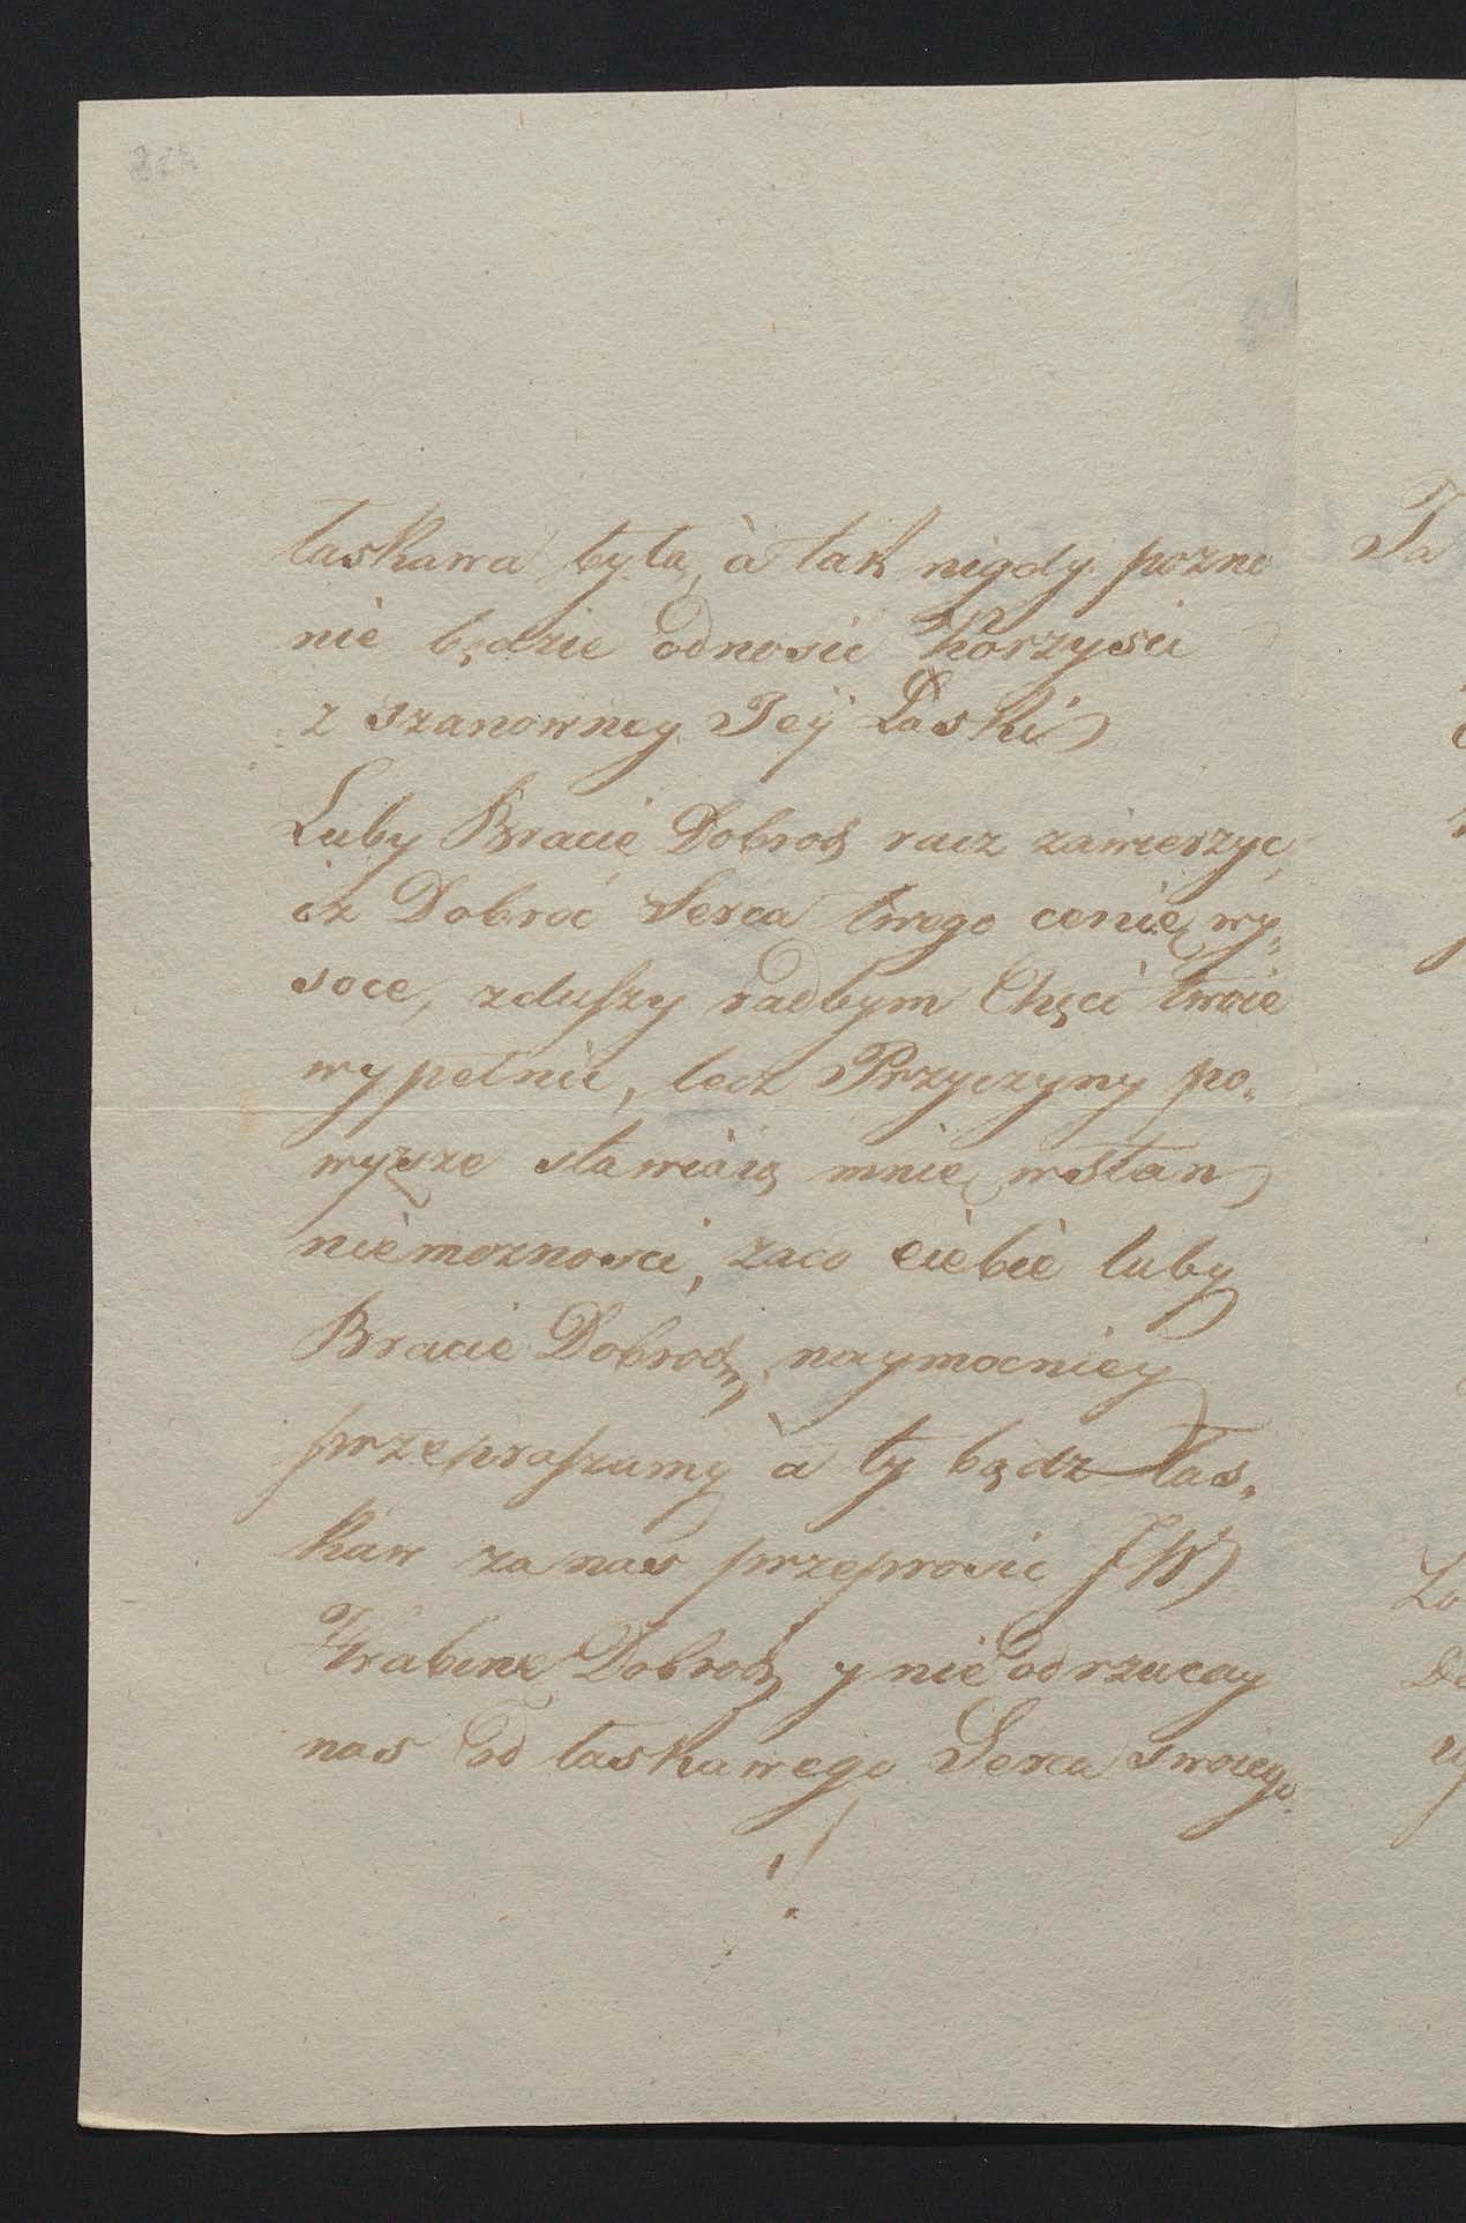 łaskawa była, à tak nigdy pozno
nie będzie odnosić Korzyści
z szanowney Jey Łaski
Luby Bracie Dobrodz racz zawierzyć,
iż Dobroć Serca twego cenię wy„
soce, zduszy radbym Chęci twoie
wypełnić, lecz Przyczyny po„
wyższe stawiaią mnie wstan
niemożności, zaco ciebie luby
Bracie Dobrodz naymocniey
przepraszamy à ty bądz łas„
kaw za nas przeprosić JW
Hrabinę Dobrodz y nie odrzucay
nas od łaskawego Serca swoiego
!